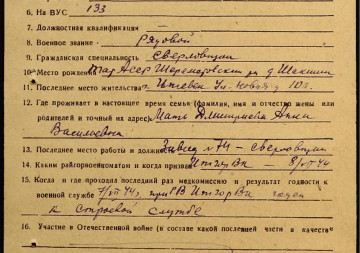 6. На ВУС 133
7. Должностная квалификация –
8. Военное звание рядовой
9. Гражданская специальность Сверловщик
10 Место рождения Тар Асер Шереметовский рн д Шекини
11. Последнее место жительства г. Ижевск Ул. Новая д 10
12. Где проживает в настоящее время семья (фамилия, имя и отчество жены или
родителей и точный их адрес) Мать Дмитриева Анна
Васильевна
13. Последнее место работы и должность Завод №74 – сверловщик
14. Каким райгорвоенкоматом и когда призван ИжгорВк – 8/VII 44
15. Когда и где проходил раз медкомиссию и результат годности к
военной службе 7/VII 44г, при ГВ ИжгорВк годен
к строевой службе
16. Участие в Отечественной войне (в составе какой последней части в качеств